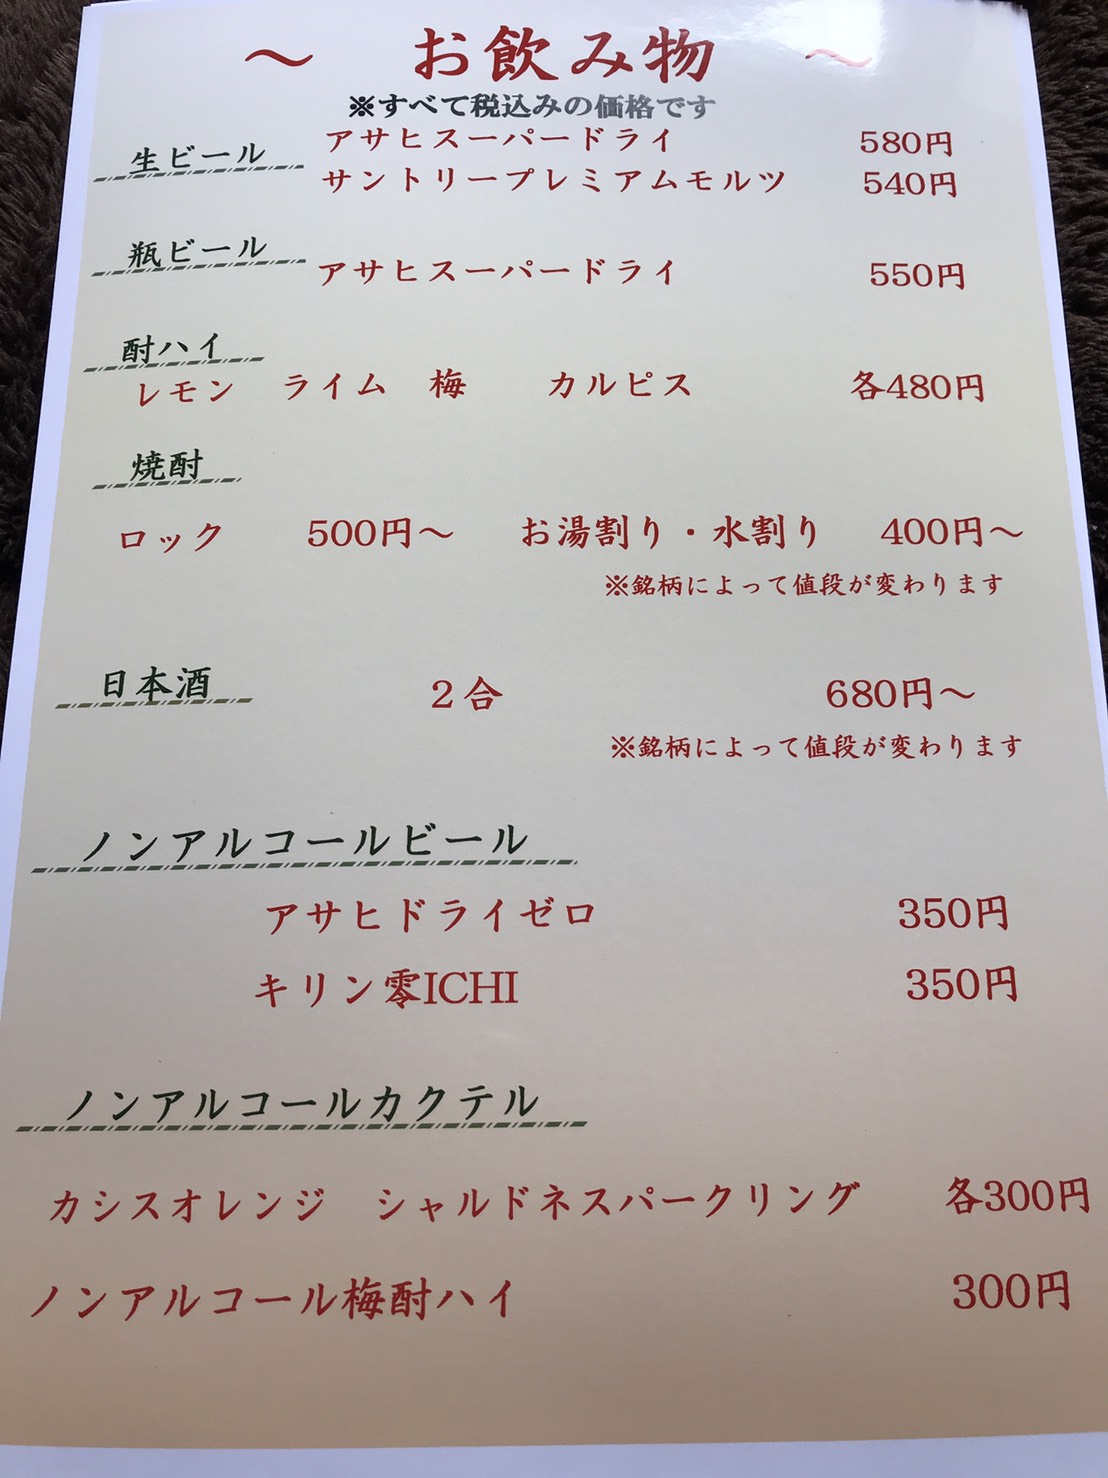 ～ お飲み物 ～
※すべて税込みの価格です
生ビール アサヒスーパードライ 580円
サントリープレミアムモルツ 540円
瓶ビール
アサヒスーパードライ 550円
酎ハイ
レモン ライム 梅 カルピス 各480円
焼酎
ロック 500円～ お湯割り・水割り 400円～
※銘柄によって値段が変わります
日本酒 2合 680円～
※銘柄によって値段が変わります
ノンアルコールビール
アサヒドライゼロ 350円
キリン零ICHI 350円
ノンアルコールカクテル
カシスオレンジ シャルドネスパークリング 各300円
ノンアルコール梅酎ハイ 300円